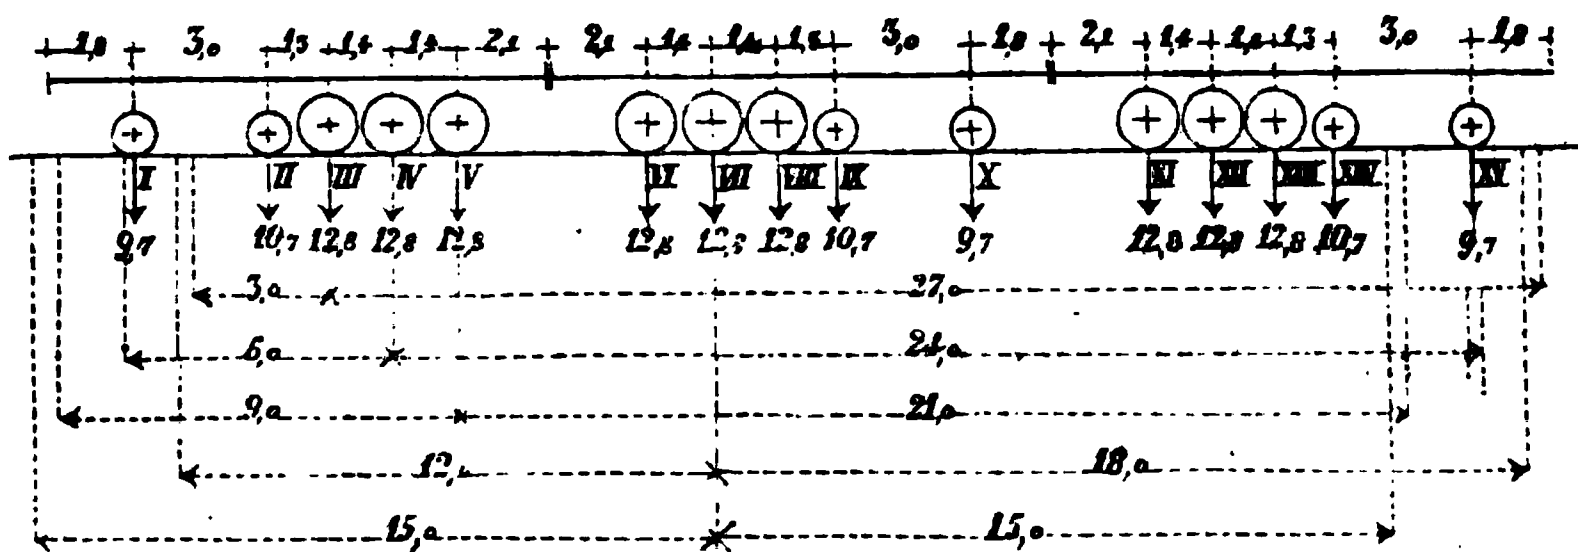 1,8 3,0 1,3 1,4 1,4 2,1 2,1 1,4 1,4 1,3 3,0 1,8 2,1 1,4 1,4 1,3 3,0 1,8
I II III IV V VI VII VIII IX X XI XII XIII XIV XV
9,7 10,7 12,8 12,8 12,8 12,8 12,8 12,8 10,7 9,7 12,8 12,8 12,8 10,7 9,7
3,0 27,0
6,0 24,0
9,0 21,0
12,0 18,0
15,0 15,0